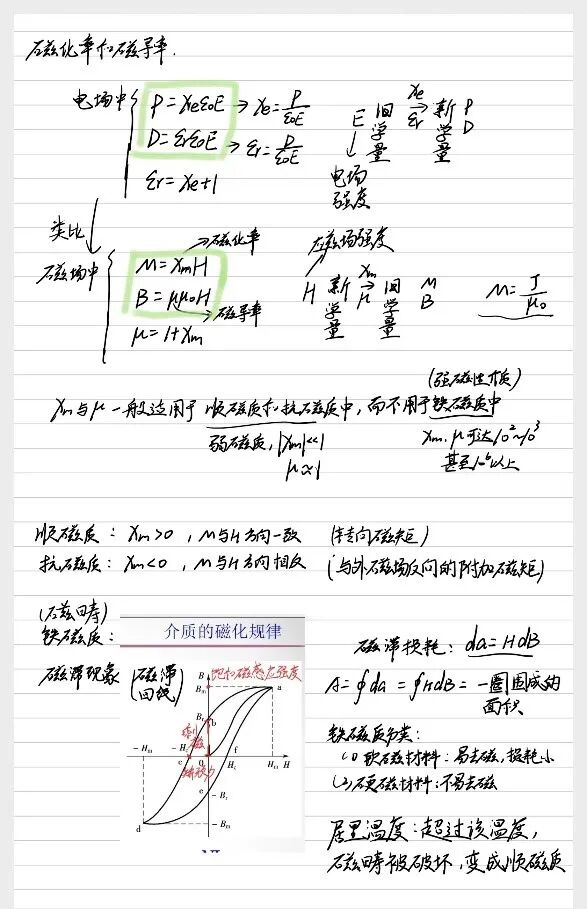 磁化率和磁导率.
电场中 P=χeε0E → χe=P/ε0E
D=εrε0E → εr=D/ε0E
εr=χe+1
E 旧学量 χe→εr 新学量 P D
电场强度
类比
磁场中 M=χmH → 磁化率
B=μμ0H → 磁导率
μ=1+χm
磁场强度
H 新学量 χm→μ 旧学量 M B
M=J/μ0
χm与μ一般适用于顺磁质和抗磁质中,而不用于铁磁质中
(强磁性介质)
弱磁质,|χm|≪1
μ≈1
χm、μ可达10²~10³
甚至10⁶以上
顺磁质: χm>0, M与H方向一致 (转向磁矩)
抗磁质: χm<0, M与H方向相反 (与外磁场反向的附加磁矩)
(磁畴)
铁磁质:
磁滞现象 (磁滞回线)
介质的磁化规律
B
Bm 饱和磁感应强度
a
b
剩磁
矫顽力
- Hm
c
O
f
Hc
Hm H
e
- Br
d
- Bm
磁滞损耗: da=HdB
A=∮da=∮HdB=一圈围成的面积
铁磁质分类:
(1)软磁材料:易去磁,损耗小
(2)硬磁材料:不易去磁
居里温度:超过该温度,
磁畴被破坏,变成顺磁质